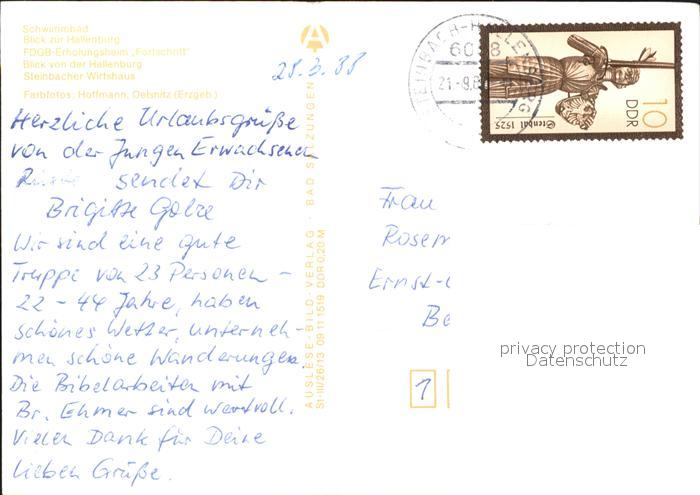 Schwimmbad
Blick zur Hallenburg
FDGB-Erholungsheim „Fortschritt"
Blick von der Hallenburg
Steinbacher Wirtshaus
Farbfotos: Hoffmann, Oelsnitz (Erzgeb.)
28.3.88
Herzliche Urlaubsgrüße
von der Jungen Erwachsenen
sendet Dir
Brigitte
Wir sind eine gute
Truppe von 23 Personen –
22 – 44 Jahre, haben
schönes Wetter, unterneh-
men schöne Wanderungen.
Die Bibelarbeiten mit
Br. Ehmer sind wertvoll.
Vielen Dank für Deine
lieben Grüße.
AUSLESE-BILD-VERLAG · BAD SALZUNGEN
St·III/26/13 09 11 1519 DDR 0,20 M
STEINBACH-HALLENBERG
60 8
21.-9.8
Stendal 1525
10
DDR
Frau
Rosem
Ernst-
Be
privacy protection
Datenschutz
1